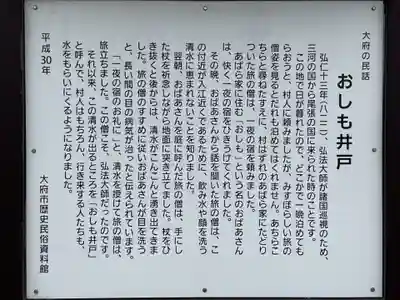 大府の民話
おしも井戸
弘仁十三年(八二二)、弘法大師が諸国巡視のため、
三河の国から尾張の国に来られた時のことです。
この地で日が暮れたので、どこかで一晩泊めても
らおうと、村人に頼みましたが、みすぼらしい旅の
僧姿を見るとだれも泊めてはくれません。あちらこ
ちらと尋ねたすえに、村はずれのあばら家にたどり
ついた旅の僧は、一夜の宿を頼みました。
あばら家に住む「おしも」という名のおばあさん
は、快く一夜の宿をひきうけてくれました。
その晩、おばあさんから話を聞いた旅の僧は、こ
の付近が入江近くであるために、飲み水や顔を洗う
清水に恵まれないことを知りました。
翌朝、おばあさんを庭に呼んだ旅の僧は、手にし
た杖を祈念しながら地面に突き立てました。杖をひ
き抜くと後からは、清水がこんこんと湧き出てきま
した。旅の僧のすすめに従いおばあさんが目を洗う
と、長い間の目の病気が治ったと伝えられています。
「一夜の宿のお礼に」と、清水を授けて旅の僧は、
旅立ちました。この僧こそ、弘法大師だったのです。
それ以来、この清水が出るところを「おしも井戸」
と呼んで、村人はもちろん、行き来する人たちも、
水をもらいにくるようになりました。
平成30年
大府市歴史民俗資料館